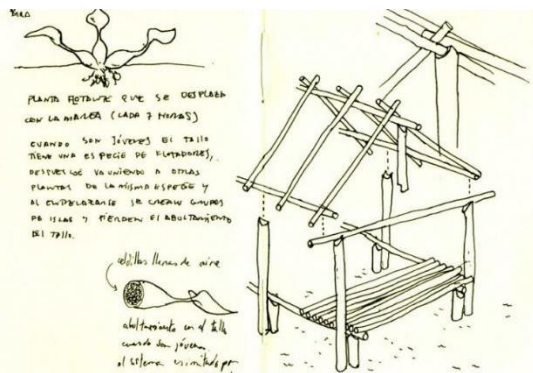 PLANTA FLOTANTE QUE SE DESPLAZA
CON LA MAREA (CADA 7 HORAS)
CUANDO SON JÓVENES EL TALLO
TIENE UNA ESPECIE DE FLOTADORES,
DESPUES SE VA UNIENDO A OTRAS
PLANTAS DE LA MISMA ESPECIE Y
AL ENTRELAZARSE SE CREAN GRUPOS
DE ISLAS Y PIERDEN EL ABULTAMIENTO
DEL TALLO.
celdillas llenas de aire
abultamiento en el tallo
cuando son jóvenes
el sistema es imitado por